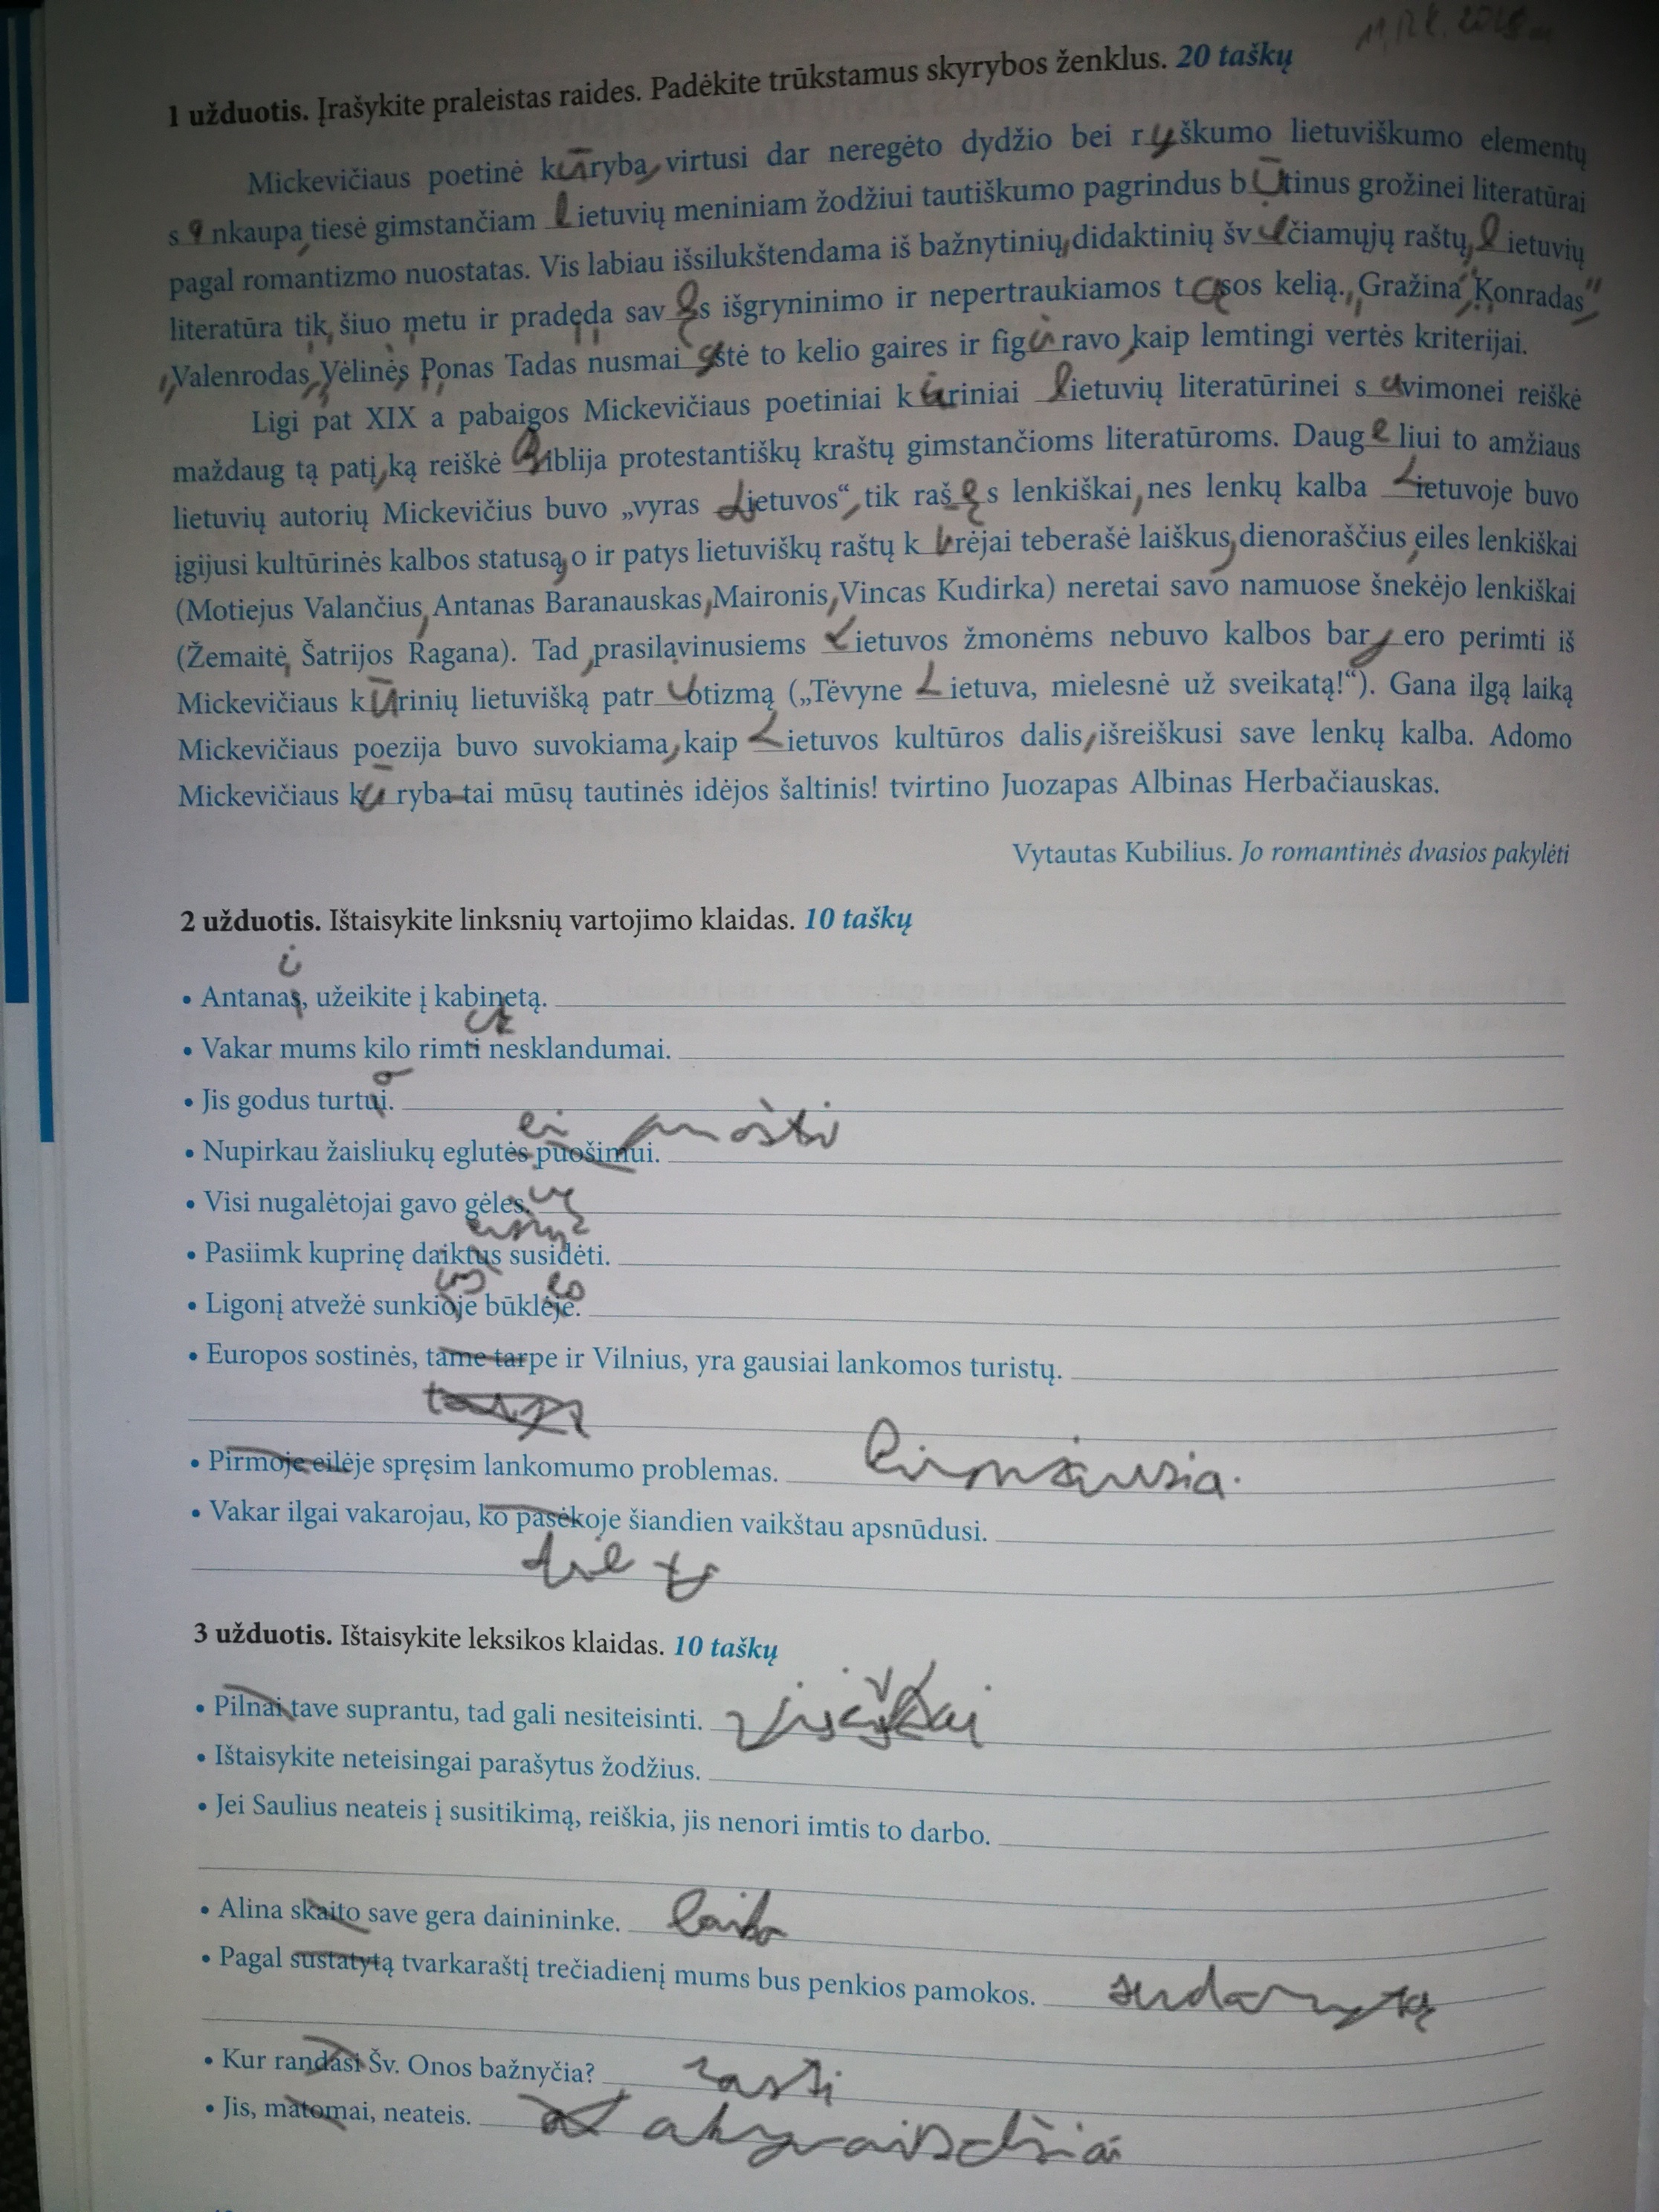 11,12 €. 2025 m
1 užduotis. Įrašykite praleistas raides. Padėkite trūkstamus skyrybos ženklus. 20 taškų
Mickevičiaus poetinė kūryba, virtusi dar neregėto dydžio bei ryškumo lietuviškumo elementų
sankaupa, tiesė gimstančiam lietuvių meniniam žodžiui tautiškumo pagrindus būtinus grožinei literatūrai
pagal romantizmo nuostatas. Vis labiau išsilukštendama iš bažnytinių, didaktinių šviečiamųjų raštų, lietuvių
literatūra tik šiuo metu ir pradeda savęs išgryninimo ir nepertraukiamos tąsos kelią. „Gražina“, „Konradas
Valenrodas“, „Vėlinės“, „Ponas Tadas“ nusmaigstė to kelio gaires ir figūravo, kaip lemtingi vertės kriterijai.
Ligi pat XIX a pabaigos Mickevičiaus poetiniai kūriniai lietuvių literatūrinei savimonei reiškė
maždaug tą patį, ką reiškė Biblija protestantiškų kraštų gimstančioms literatūroms. Daugeliui to amžiaus
lietuvių autorių Mickevičius buvo „vyras Lietuvos“, tik rašęs lenkiškai, nes lenkų kalba Lietuvoje buvo
įgijusi kultūrinės kalbos statusą, o ir patys lietuviškų raštų kūrėjai teberašė laiškus, dienoraščius, eiles lenkiškai
(Motiejus Valančius, Antanas Baranauskas, Maironis, Vincas Kudirka) neretai savo namuose šnekėjo lenkiškai
(Žemaitė, Šatrijos Ragana). Tad, prasilavinusiems Lietuvos žmonėms nebuvo kalbos barjero perimti iš
Mickevičiaus kūrinių lietuvišką patriotizmą („Tėvyne Lietuva, mielesnė už sveikatą!“). Gana ilgą laiką
Mickevičiaus poezija buvo suvokiama, kaip Lietuvos kultūros dalis, išreiškusi save lenkų kalba. Adomo
Mickevičiaus kūryba – tai mūsų tautinės idėjos šaltinis! tvirtino Juozapas Albinas Herbačiauskas.
Vytautas Kubilius. Jo romantinės dvasios pakylėti
2 užduotis. Ištaisykite linksnių vartojimo klaidas. 10 taškų
i
• Antanas, užeikite į kabinetą.
• Vakar mums kilo rimti nesklandumai.
o
• Jis godus turtui.
ei puošti
• Nupirkau žaisliukų eglutės puošimui.
• Visi nugalėtojai gavo gėles. ių
• Pasiimk kuprinę daiktus susidėti.
ios ės
• Ligonį atvežė sunkioje būklėje.
• Europos sostinės, tame tarpe ir Vilnius, yra gausiai lankomos turistų.
• Pirmoje eilėje spręsim lankomumo problemas. Pirmiausia.
• Vakar ilgai vakarojau, ko pasėkoje šiandien vaikštau apsnūdusi.
dėl to
3 užduotis. Ištaisykite leksikos klaidas. 10 taškų
• Pilnai tave suprantu, tad gali nesiteisinti. visiškai
• Ištaisykite neteisingai parašytus žodžius.
• Jei Saulius neateis į susitikimą, reiškia, jis nenori imtis to darbo.
• Alina skaito save gera dainininke. laiko
• Pagal sustatytą tvarkaraštį trečiadienį mums bus penkios pamokos. sudarytą
• Kur randasi Šv. Onos bažnyčia? rasti
• Jis, matomai, neateis. akyvaizdžiai